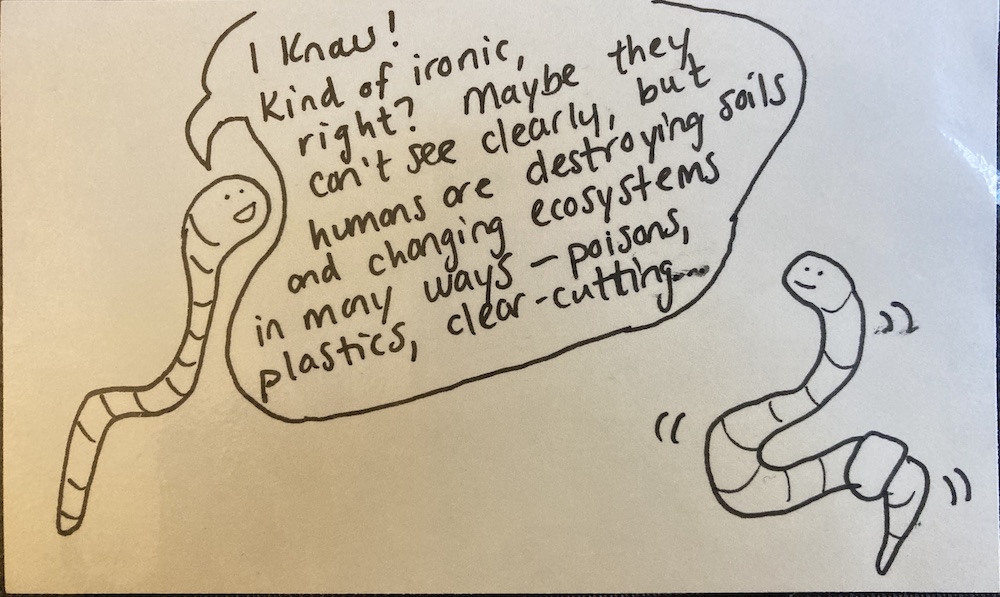 I Know!
Kind of ironic,
right? Maybe they
can't see clearly, but
humans are destroying soils
and changing ecosystems
in many ways - poisons,
plastics, clear-cutting...